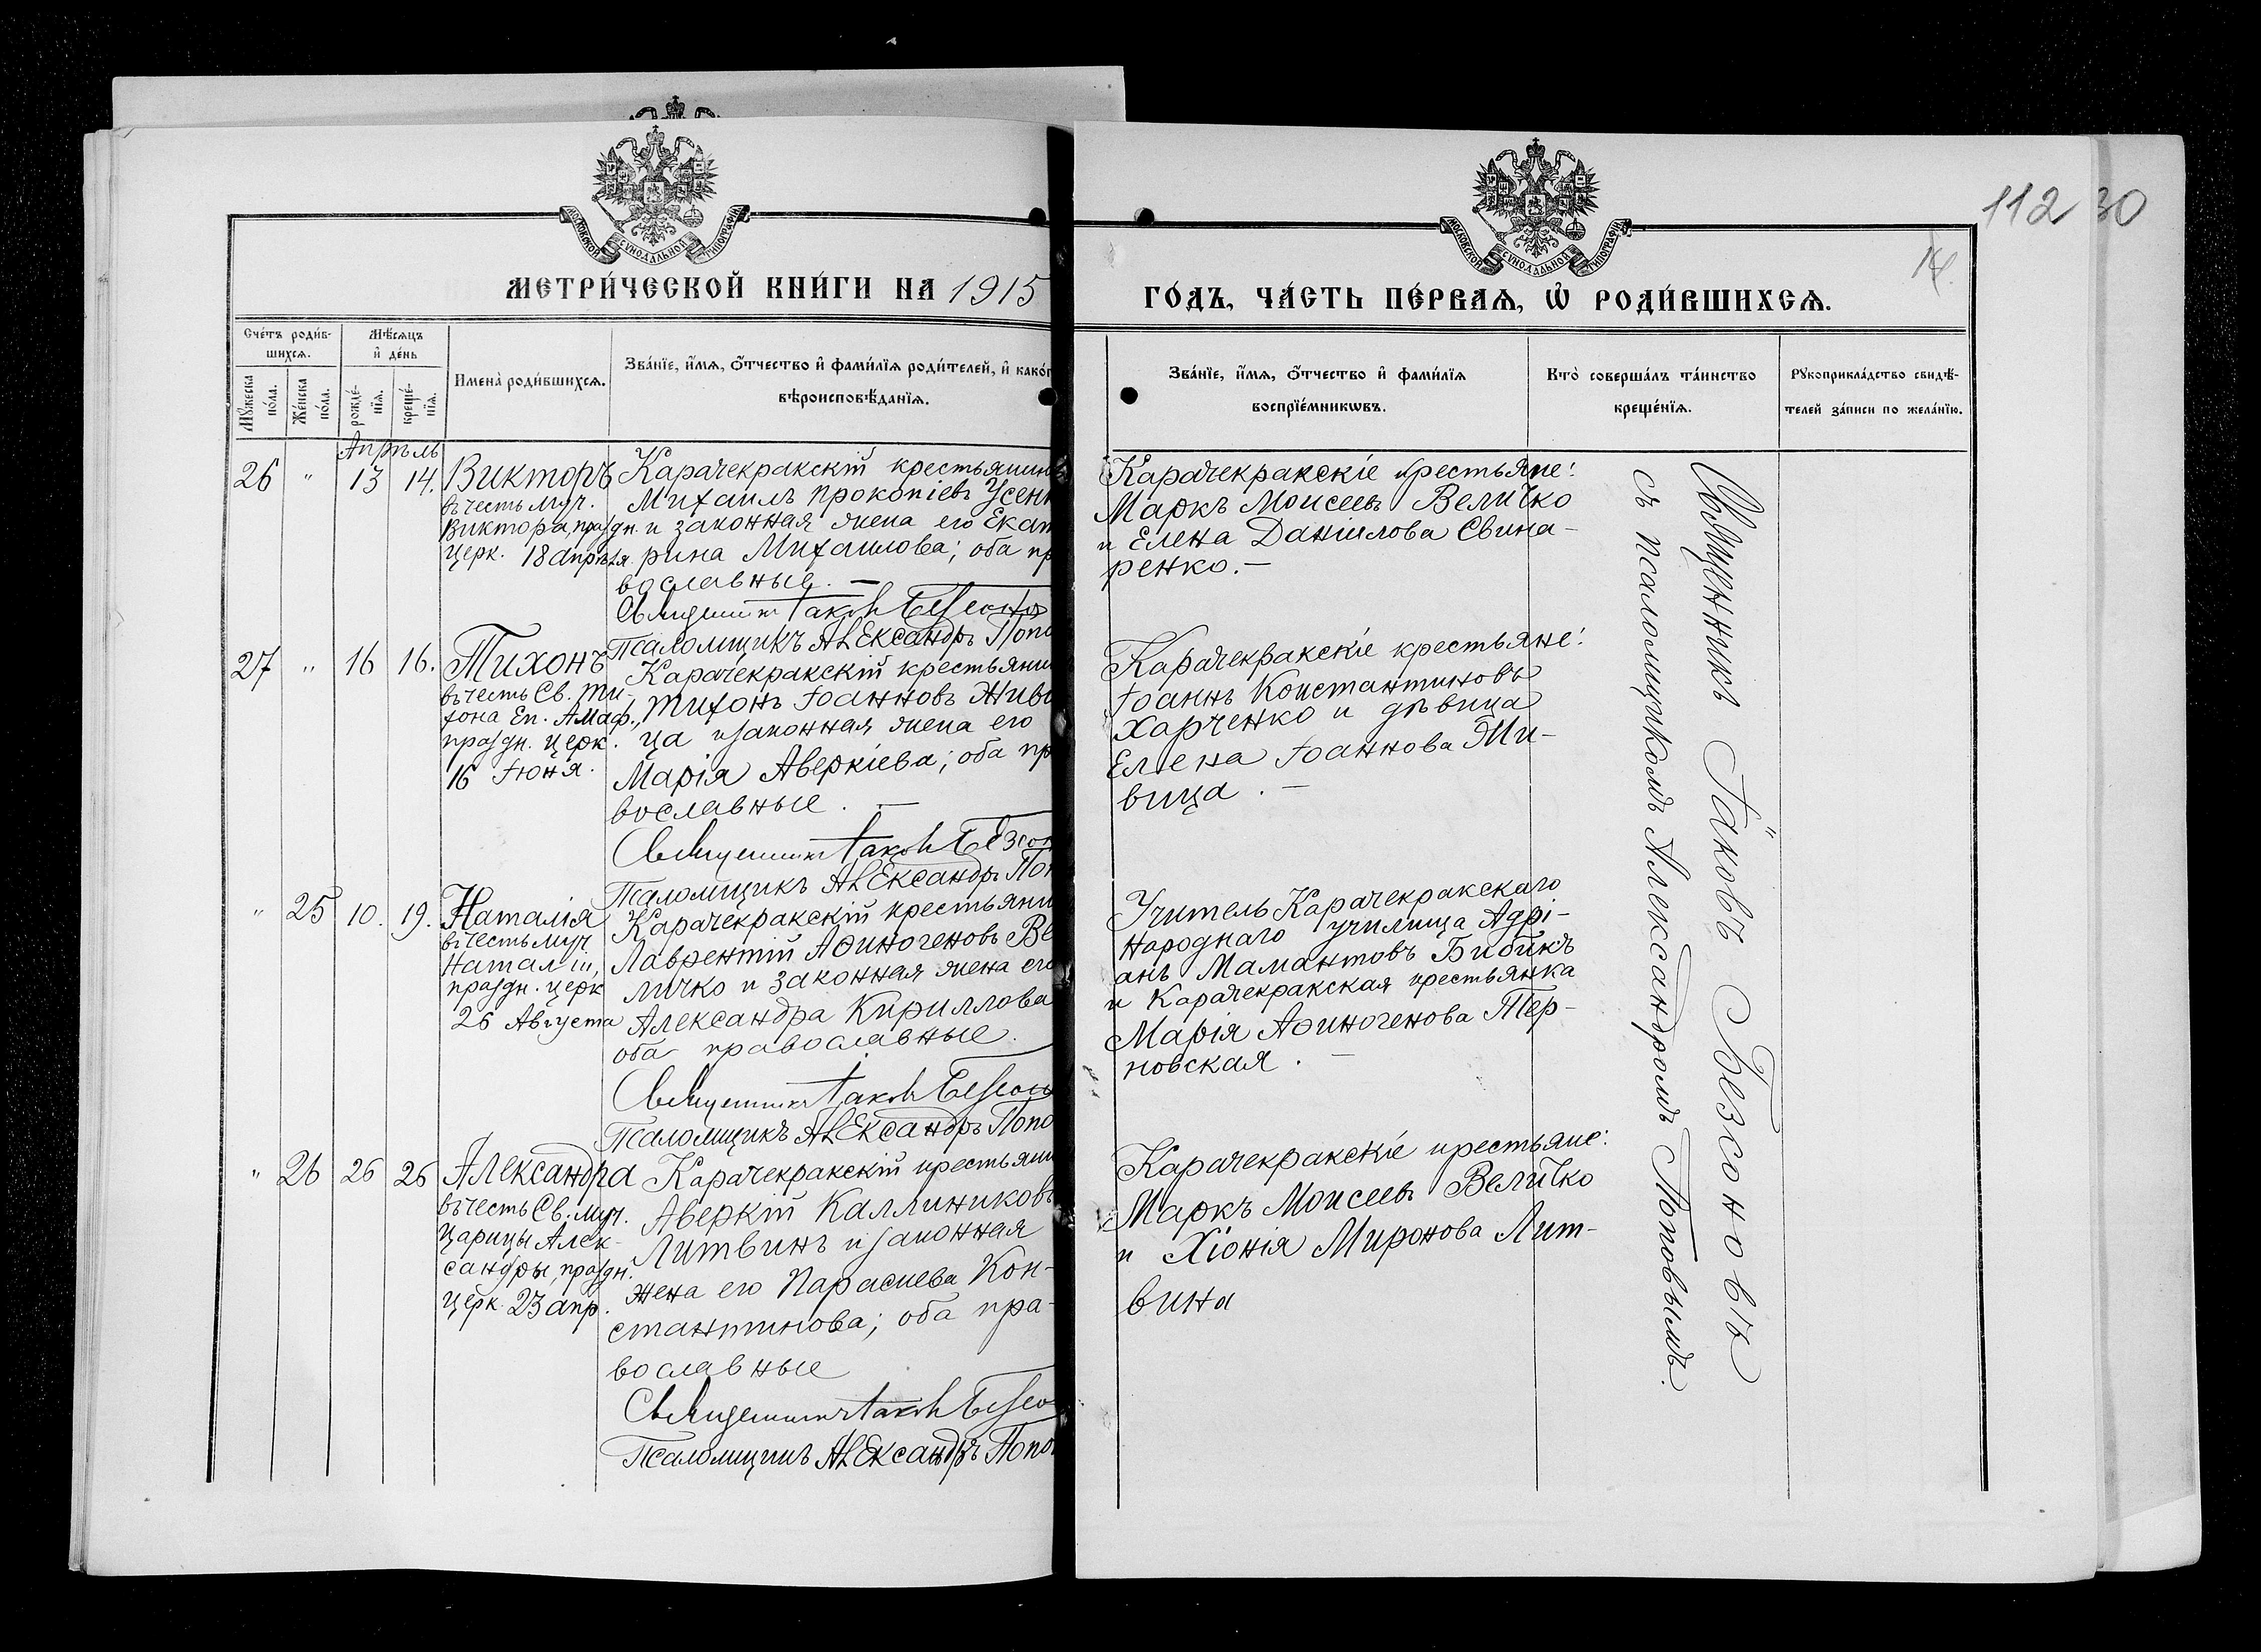 112 30
14
МЕТРИ́ЧЕСКОЙ КНИ́ГИ НА 1915
ГО́ДЪ, ЧА́СТЬ ПЕ́РВАѦ, Ѡ РОДИ́ВШИХСѦ.
МОСКОВСКОЙ СѴНОДАЛЬНОЙ ТИПОГРАФІИ
МОСКОВСКОЙ СѴНОДАЛЬНОЙ ТИПОГРАФІИ
Сче́тъ роди́в-
шихсѧ.
Мꙋ́жеска по́ла.
Же́нска по́ла.
Мѣ́сѧцъ
и҆ де́нь
рожде́-
нїѧ.
креще́-
нїѧ.
Имена̀ роди́вшихсѧ.
Зва́нїе, и҆́мѧ, ѻ҆́тчество и҆ фами́лїѧ роди́телей, и҆ како́г
вѣроисповѣ́данїѧ.
Зва́нїе, и҆́мѧ, ѻ҆́тчество и҆ фами́лїѧ
воспрїе́мникѡвъ.
Кто̀ соверша́лъ та́инство
креще́нїѧ.
Рꙋкоприкла́дство свидѣ́-
телей за́писи по жела́нїю.
Апрѣль
26 " 13 14. Викторъ
въ честь муч.
Виктора, праздн.
церк. 18 апрѣля.
Карачекракскій крестьянинъ
Михаилъ Прокопіевъ Усен
и законная жена его Екат
рина Михаилова; оба пр
вославные. —
Священникъ Іаковъ Безсонов
Псаломщикъ Александръ Попо
Карачекракскіе крестьяне:
Маркъ Моисеевъ Величко
и Елена Даніилова Свина-
ренко. —
27 " 16 16. Тихонъ
въ честь Св. Ти-
хона Еп. Амаф.,
праздн. церк.
16 Іюня.
Карачекракскій крестьянин
Тихонъ Іоанновъ Живи
ца и законная жена его
Марія Аверкіева; оба пр
вославные. —
Священникъ Іаковъ Безсон
Псаломщикъ Александръ Поп
Карачекракскіе крестьяне:
Іоаннъ Константиновъ
Харченко и дѣвица
Елена Іоаннова Жи-
вица. —
" 25 10. 19. Наталія
въ честь муч
Наталіи,
праздн. церк
26 Августа
Карачекракскій крестьяни
Лаврентій Аѳиногеновъ Ве
личко и законная жена его
Александра Кириллова
оба православные.
Священникъ Іаковъ Безсон
Псаломщикъ Александръ Попо
Учитель Карачекракскаго
народнаго училища Адрі-
анъ Мамантовъ Бибикъ
и Карачекракская крестьянка
Марія Аѳиногенова Тер-
новская. —
" 26 26 26 Александра
въ честь Св. муч.
Царицы Алек-
сандры, праздн.
церк. 23 апр.
Карачекракскій крестьянин
Аверкій Каллиниковъ
Литвинъ и законная
жена его Параскева Кон-
стантинова; оба пра-
вославные
Священникъ Іаковъ Безсо
Псаломщикъ Александръ Попо
Карачекракскіе крестьяне:
Маркъ Моисеевъ Величко
и Хіонія Миронова Лит-
вина
Священникъ Іаковъ Безсоновъ
съ псаломщикомъ Александромъ Поповымъ.